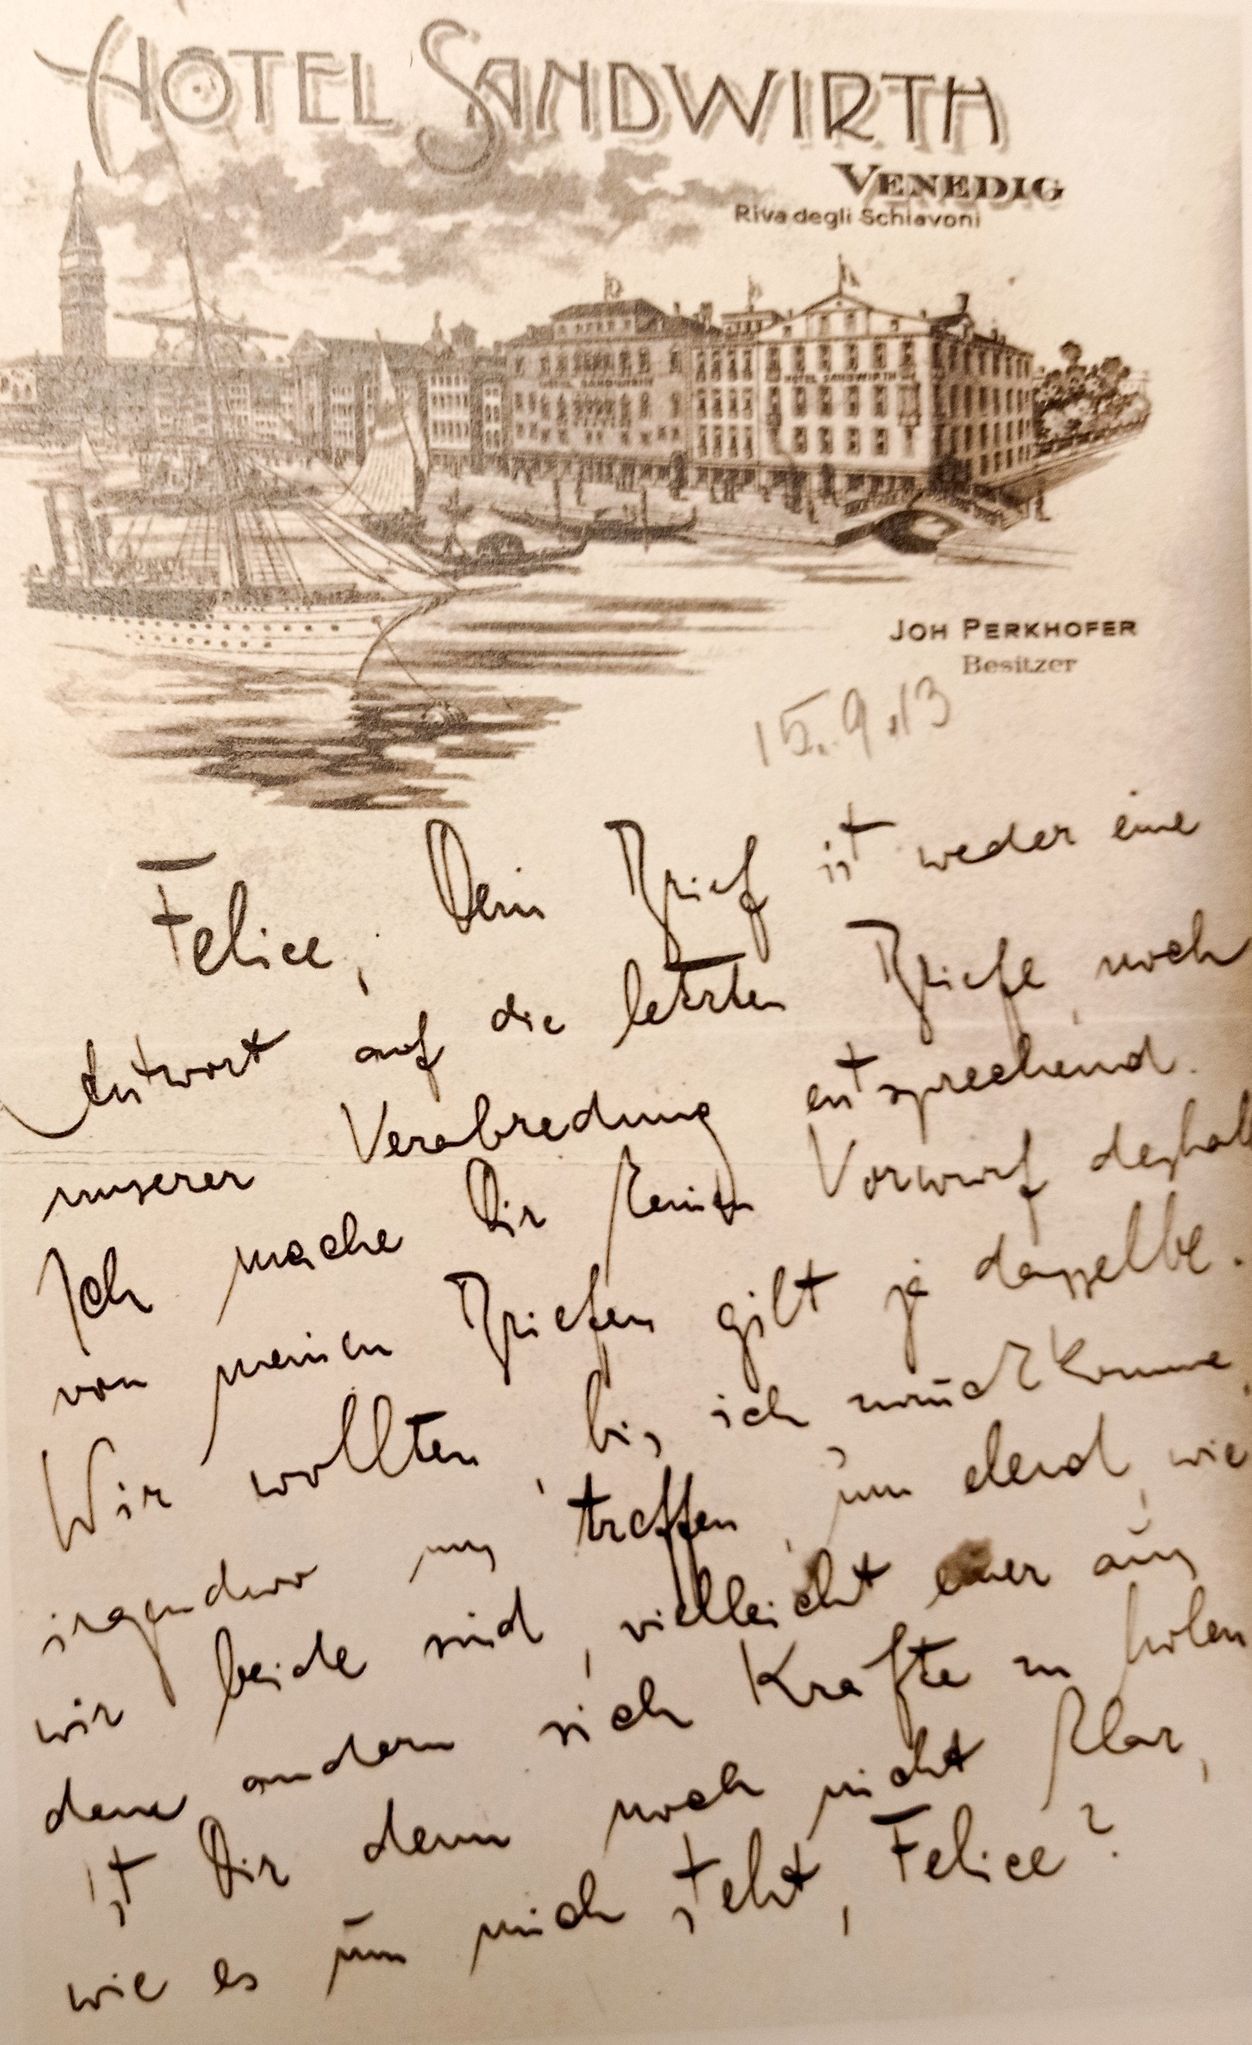 HOTEL SANDWIRTH
VENEDIG
Riva degli Schiavoni
HOTEL SANDWIRTH
HOTEL SANDWIRTH
JOH PERKHOFER
Besitzer
15.9.13
Felice, Dein Brief ist weder eine
Antwort auf die letzten Briefe, noch
unserer Verabredung entsprechend.
Ich mache Dir keinen Vorwurf deshalb
von meinen Briefen gilt ja dasselbe.
Wir wollten, bis ich zurückkomme,
irgendwo uns treffen, um elend, wie
wir beide sind, vielleicht einer aus
dem andern sich Kräfte zu holen
ist Dir denn noch nicht klar,
wie es um mich steht, Felice?